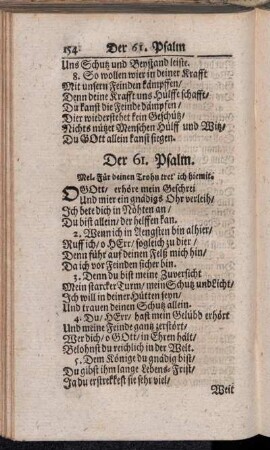 154. Der 61. Psalm
Uns Schutz und Beystand leiste.
8. So wollen wier in deiner Krafft
Mit unsern Feinden kämpffen/
Denn deine Krafft uns Hülffe schafft/
Du kanst die Feinde dämpffen/
Dier wiederstehet kein Geschütz/
Nichts nützet Menschen Hülff und Witz/
Du GOtt allein kanst siegen.
Der 61. Psalm.
Mel. Für deinen Trohn tret' ich hiemit.
OGOtt/ erhöre mein Geschrei
Und mier ein gnädigs Ohr verleih/
Ich bete dich in Nöhten an/
Du bist allein/ der helffen kan.
2. Wenn ich in Aengsten bin alhier/
Ruff ich/ o HErr/ sogleich zu dier/
Denn führ auf deinen Felß mich hin/
Da ich vor Feinden sicher bin.
3. Denn du bist meine Zuversicht
Mein starcker Turm/ mein Schutz und Licht/
Ich will in deiner Hütten seyn/
Und trauen deinen Schutz allein.
4. Du/ HErr/ hast mein Gelübd erhört
Und meine Feinde gantz zerstört/
Wer dich/ o GOtt/ in Ehren hält/
Belohnst du reichlich in der Welt.
5. Dem Könige du gnädig bist/
Du gibst ihm lange Lebens-Frist/
Ja du erstreckest sie sehr viel/
Weit